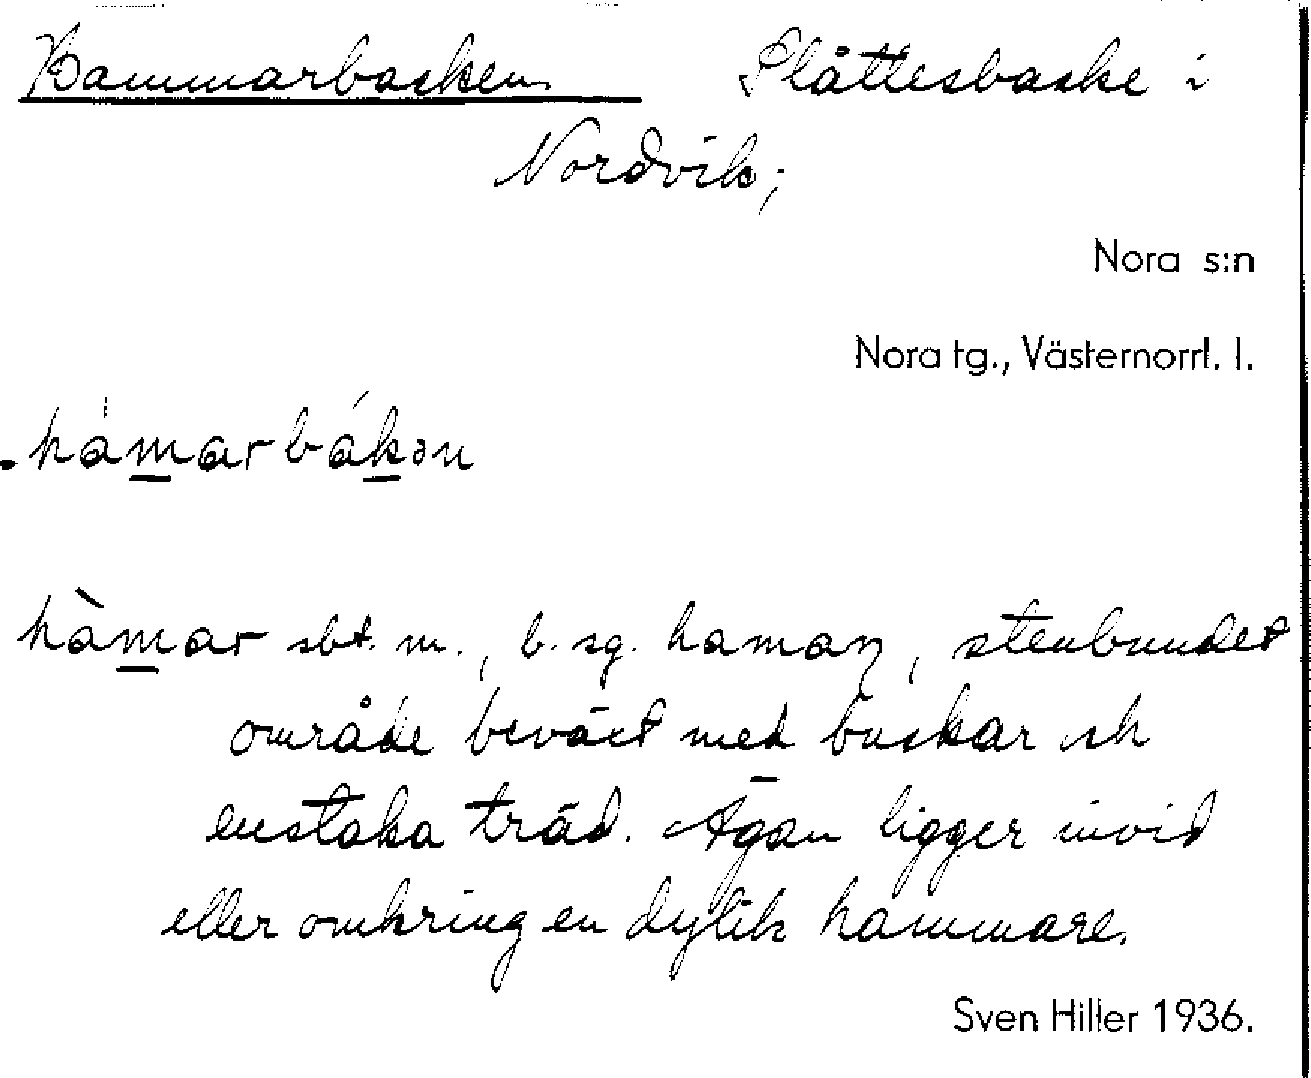 Hammarbacken Slåttesbacke i
Nordvik;
Nora s:n
Nora tg., Västernorrl. l.
hàmarbákən
hàmar sbt. m., b. sg. haman, stenbundet
område beväxt med buskar och
enstaka träd. Ägan ligger invid
eller omkring en dylik hammare.
Sven Hiller 1936.